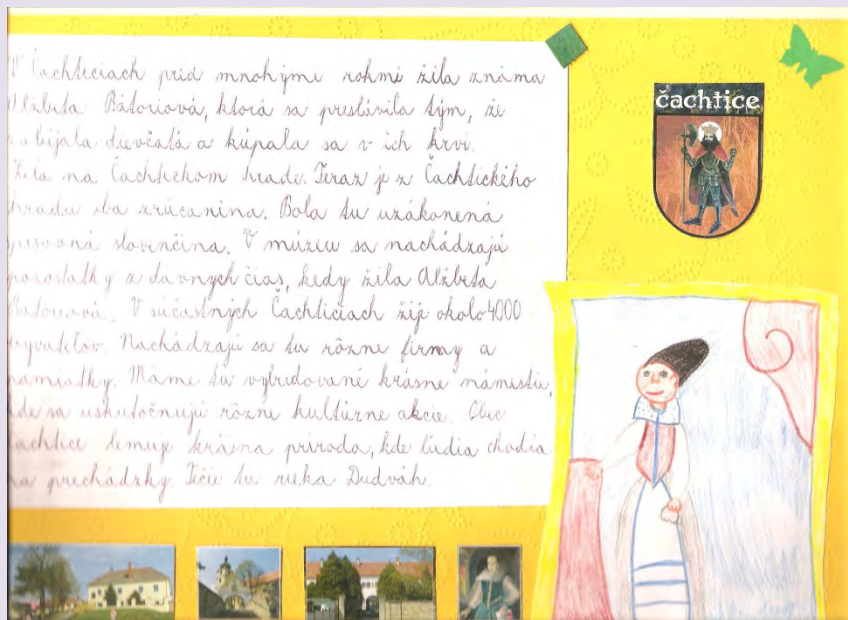 V Čachticiach pred mnohými rokmi žila známa
Alžbeta Bátoriová, ktorá sa preslávila tým, že
zabíjala dievčatá a kúpala sa v ich krvi.
Žila na Čachtickom hrade. Teraz je z Čachtického
hradu iba zrúcanina. Bola tu uzákonená
spisovná slovenčina. V múzeu sa nachádzajú
pozostatky z dávnych čias, kedy žila Alžbeta
Bátoriová. V súčastných Čachticiach žije okolo 4000
obyvateľov. Nachádzajú sa tu rôzne firmy a
pamiatky. Máme tu vybudované krásne námestie,
kde sa uskutočnujú rôzne kultúrne akcie. Obec
Čachtice lemuje krásna príroda, kde ľudia chodia
na prechádzky. Tečie tu rieka Dudváh.
čachtice